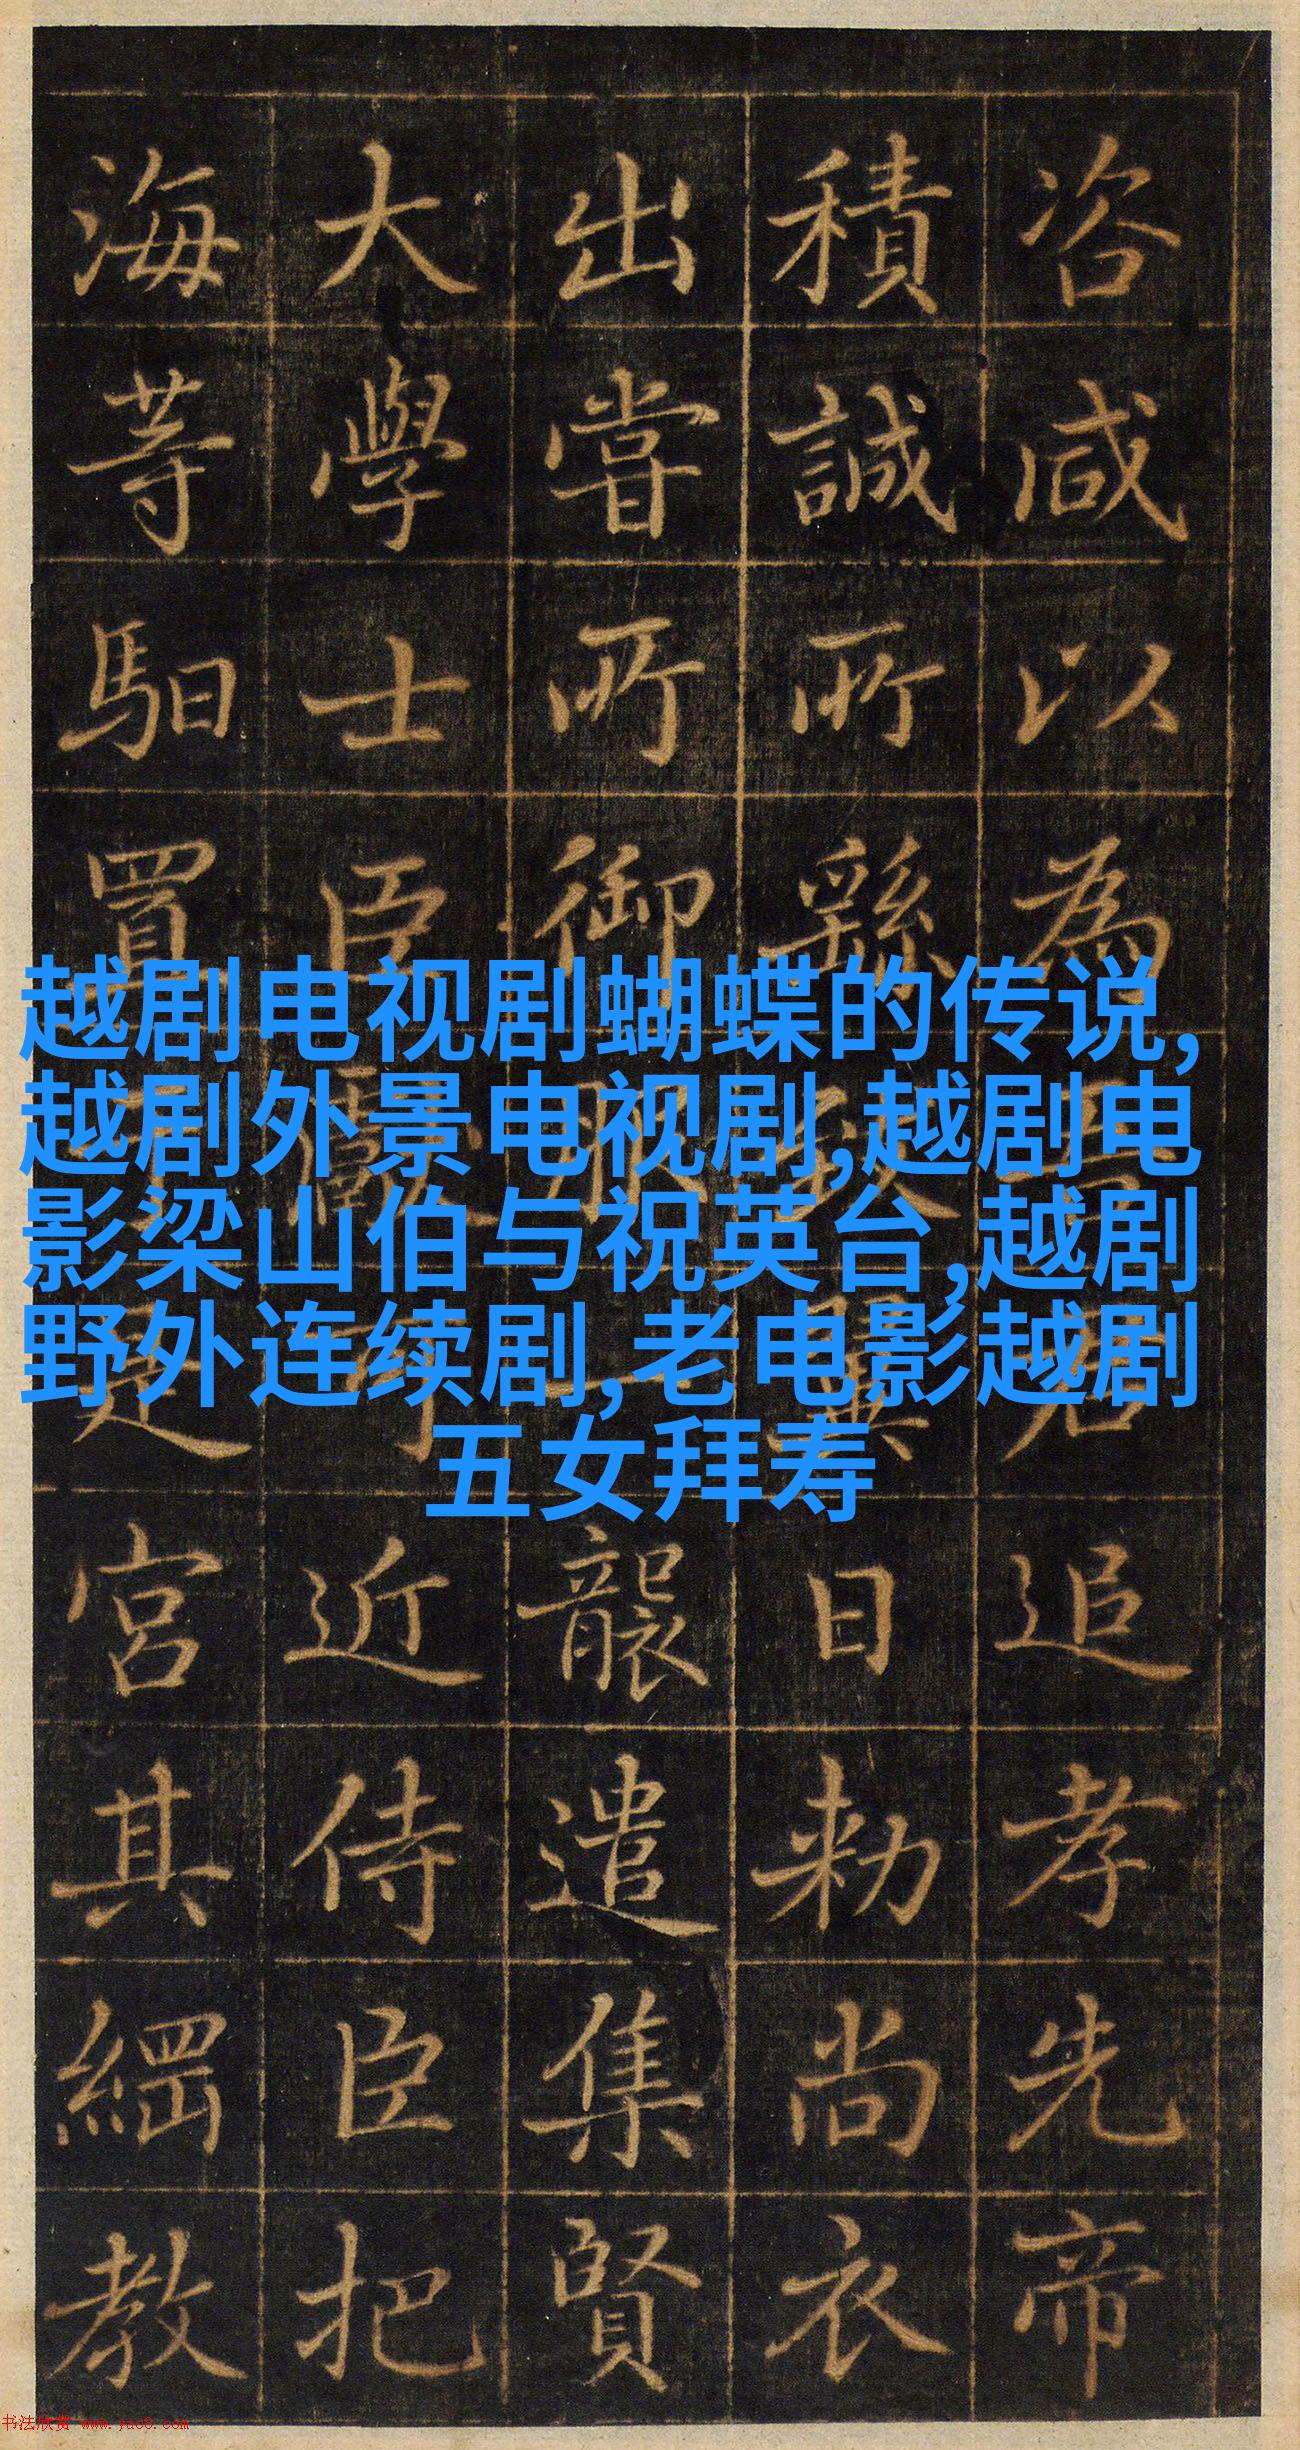 咨咸以為君追孝先帝
積誠所繇致翼日勑尚衣
出嘗所御服一襲遣集賢
大學士臣可近侍臣把
海等馹置是宮其綱教
越剧电视剧蝴蝶的传说,
越剧外景电视剧,越剧电
影梁山伯与祝英台,越剧
野外连续剧,老电影越剧
五女拜寿
书法欣赏 www.yac8.com